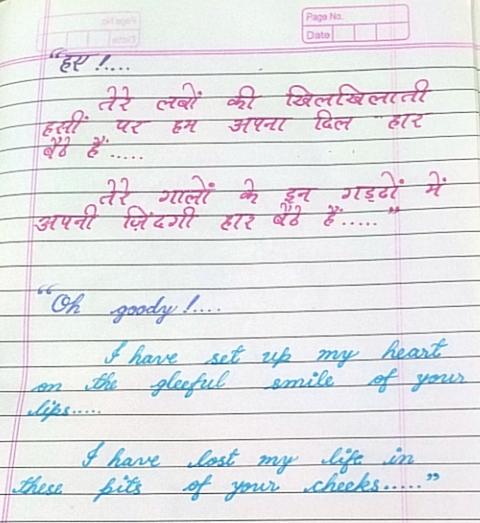 Page No.
Date
"हए !....
तेरे लबों की खिलखिलाती
हसीं पर हम अपना दिल हार
बैठे हैं.....
तेरे गालों के इन गड्ढों में
अपनी ज़िंदगी हार बैठे हैं....."
"Oh goody !....
I have set up my heart
on the gleeful smile of your
lips.....
I have lost my life in
these pits of your cheeks....."